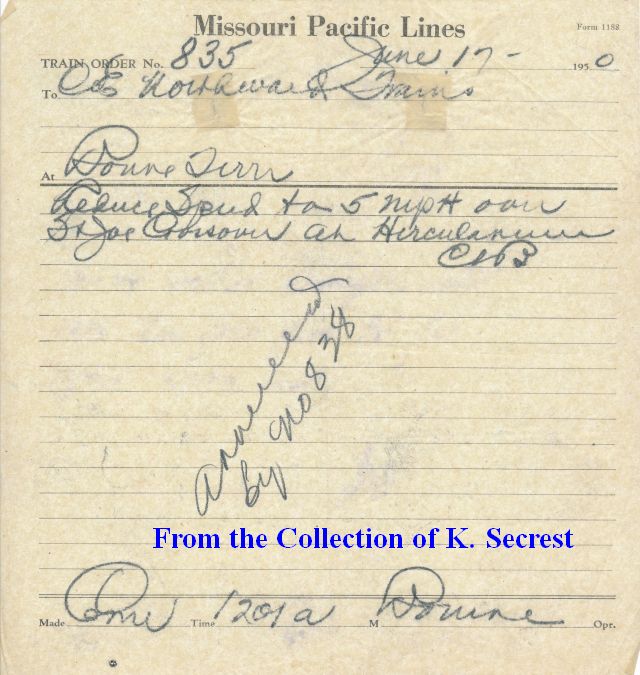 Missouri Pacific Lines
Form 1188
TRAIN ORDER No. 835 June 17 - 1950
To C&E Northward Trains
At Bonne Terre
Reduce Speed to 5 MPH over
St Joe Crossover at Herculaneum
Annulled
By No 838
From the Collection of K. Secrest
Made Com Time 1201a M Opr.